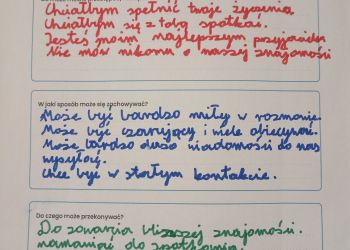 Chciałbym spełnić twoje życzenia.
Chciałbym się z tobą spotkać.
Jesteś moim najlepszym przyjacielem
Nie mów nikomu o naszej znajomości
W jaki sposób może się zachowywać?
Może być bardzo miły w rozmowie.
Może być czarujący i wiele obiecywać.
Może bardzo dużo wiadomości do nas
wysyłać.
Chce być w stałym kontakcie.
Do czego może przekonywać?
Do zawarcia bliższej znajomości.
namawiać do spotkania.